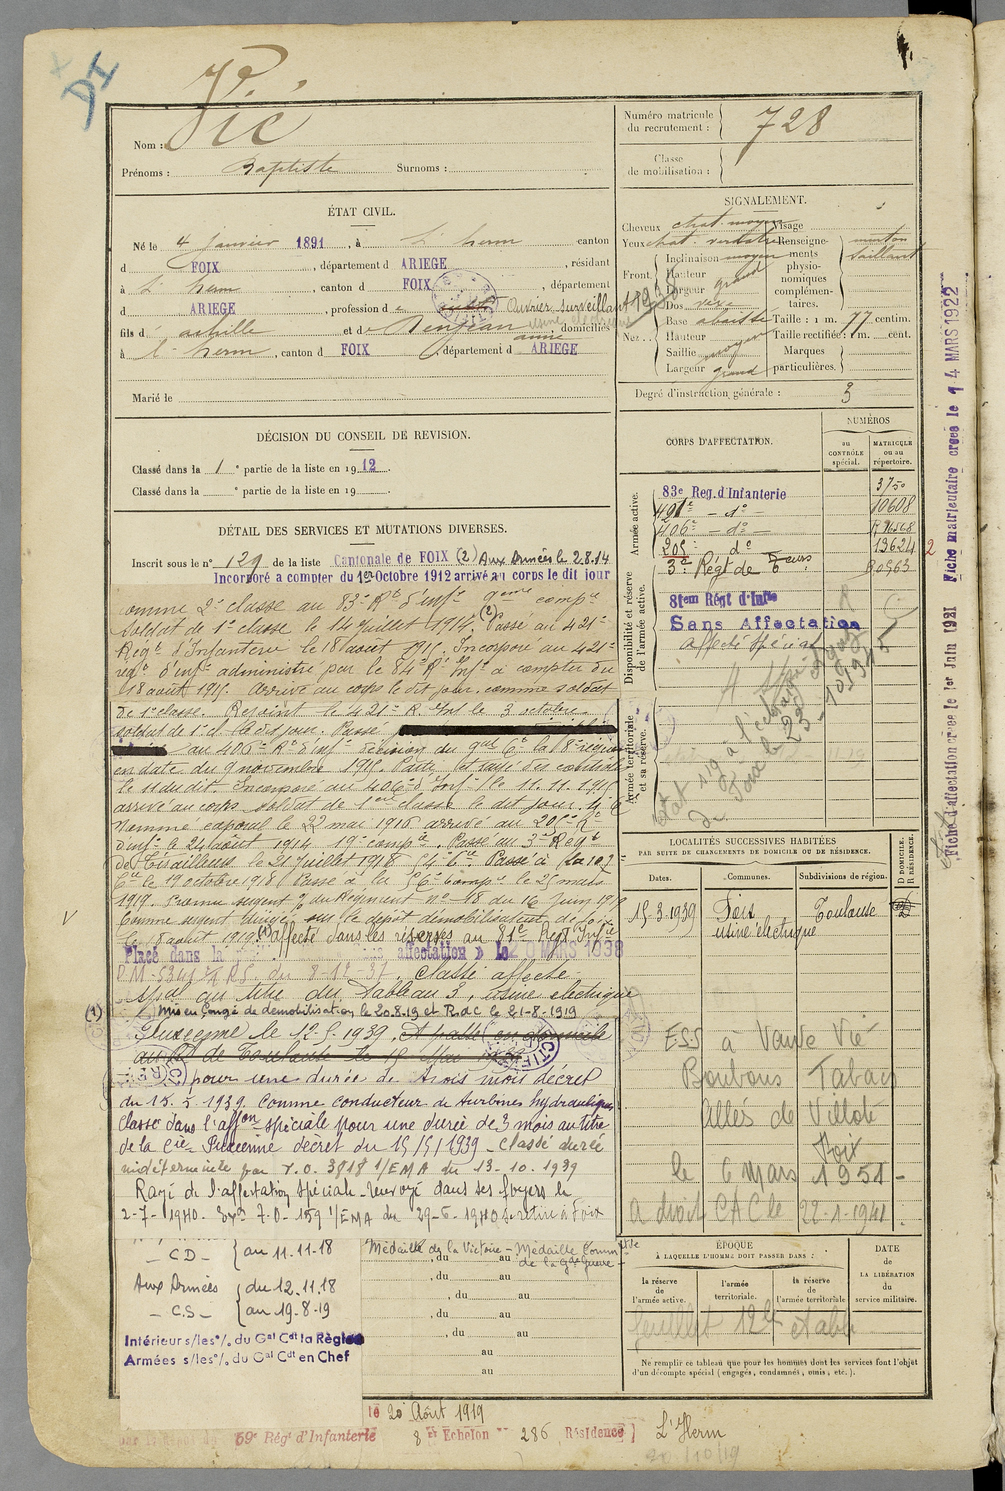 Nom : Vié
Prénoms : Baptiste Surnoms :
ÉTAT CIVIL.
Né le 4 janvier 1891, à L'herm canton
d FOIX, département d ARIEGE, résidant
à L'herm, canton d FOIX, département
d ARIEGE, profession d Ouvrier, surveillant
fils d' achille et d domiciliés
à L'herm, canton d FOIX, département d ARIEGE
Marié le
DÉCISION DU CONSEIL DE REVISION.
Classé dans la 1e partie de la liste en 1912.
Classé dans la e partie de la liste en 19
DÉTAIL DES SERVICES ET MUTATIONS DIVERSES.
Inscrit sous le n° 129 de la liste Cantonale de FOIX (2) Aux Armées le 2.8.14
Incorporé a compter du 1er Octobre 1912 arrivé au corps le dit jour
comme 2e classe au 83e Rt d'infie 9eme compie
Soldat de 1e classe le 14 juillet 1914. (2) Passé au 421e
Regt d'Infanterie le 18 août 1915. Incorporé au 421e
regt d'infie administré par le 84e Rt Infie à compter du
18 août 1915. arrivé au corps le dit jour. comme soldat
de 1e classe. Rejoint le 421e R. Inf le 3 octobre
soldat de 1e cl. le dit jour. Passé
au 406e Rt d'infie décision du gal Ct la 8e region
en date du 9 novembre 1915. Parti et rayé des contrôles
le 11 du dit. Incorporé au 406e d'Inf. le 11.11.1915
arrivé au corps soldat de 1ere classe le dit jour.
Nommé caporal le 22 mai 1916 arrivé au 205e Rt
d'infie le 24 août 1914 19e compie. Passé au 3me Regt
de Tirailleurs le 21 juillet 1918 Passé à la 107
Cie le 19 octobre 1918 Passé à la 5e Compie le 25 mars
1919. Promu sergent du Régiment n° 48 du 16 Juin 1919
Comme sergent dirigé sur le dépôt démobilisateur de foix
le 18 août 1919. (1) Affecté dans les réserves au 81e Regt Infie
Placé dans la affectation » le 20 MARS 1938
D.M. 5344 du 8-12-37. Classé affecté
spal au titre du Tableau 3, usine electrique
(1) Mis en Congé de démobilisation le 20.8.19 et R.D.C. le 21-8-1919
Pluzeenne le 12-5-1939.
pour une durée de trois mois décret
du 15.5.1939. comme conducteur de turbines hydrauliques
Classé dans l'affon spéciale pour une durée de 3 mois au titre
de la Cie Pluzenne décret du 15/5/1939 - Classé durée
indéterminée par T.O. 3818 1/EMA du 13-10-1939
Rayé de l'affectation spéciale. renvoyé dans ses foyers le
2-7-1940. T.O. 159 1/EMA du 29-6-1940 se retire à Foix
- C D - au 11-11-18
Aux Armées du 12.11.18
- C.S - au 19-8-19
Intérieur s/les% du Gal Cdt la Région
Armées s/les% du Gal Cdt en Chef
Médaille de la Victoire - Médaille Commtive
de la Gde Guerre -
, du au
, du au
, du au
, du au
au
au
le 20 Août 1919
59e Régt d'Infanterie 8 et Echelon 286 Résidence L'Herm
20/10/19
Numéro matricule
du recrutement : 728
Classe
de mobilisation :
SIGNALEMENT.
Cheveux chat. moyen
Yeux chat. verdatre
Front. Inclinaison moyen
Hauteur grand
Largeur
Nez. Dos
Base abaissé
Hauteur
Saillie moyen
Largeur grand
Visage
Renseignements physionomiques complémentaires. menton saillant
Taille : 1 m. 77 centim.
Taille rectifiée : 1 m. cent.
Marques particulières.
Degré d'instruction générale : 3
CORPS D'AFFECTATION.
NUMÉROS
au CONTRÔLE spécial.
MATRICULE ou au répertoire.
Armée active.
83e Reg. d'Infanterie 3750
421e - do - 10608
406e - do -
205e do 13624
3e Régt de Teurs
Disponibilité et réserve de l'armée active.
81em Régt d'Infie
Sans Affectation
affecté spécial
Armée territoriale et sa réserve.
LOCALITÉS SUCCESSIVES HABITÉES
PAR SUITE DE CHANGEMENTS DE DOMICILE OU DE RÉSIDENCE.
Dates. Communes. Subdivisions de région. D DOMICILE. R RÉSIDENCE.
15.3.1939 Foix Toulouse
usine électrique
ESS à Vauve Vié
Bonbons Tabacs
Allés de Villote
Foix
le 6 Mars 1951 -
a droit CAC le 22-1-1941
ÉPOQUE
À LAQUELLE L'HOMME DOIT PASSER DANS :
la réserve de l'armée active.
l'armée territoriale.
la réserve de l'armée territoriale
DATE DE LA LIBÉRATION du service militaire.
feuillet établi
Ne remplir ce tableau que pour les hommes dont les services font l'objet
d'un décompte spécial (engagés, condamnés, omis, etc.).
Fiche d'affectation créée le 1er Juin 1921 Fiche matriculaire créée le 14 MARS 1922